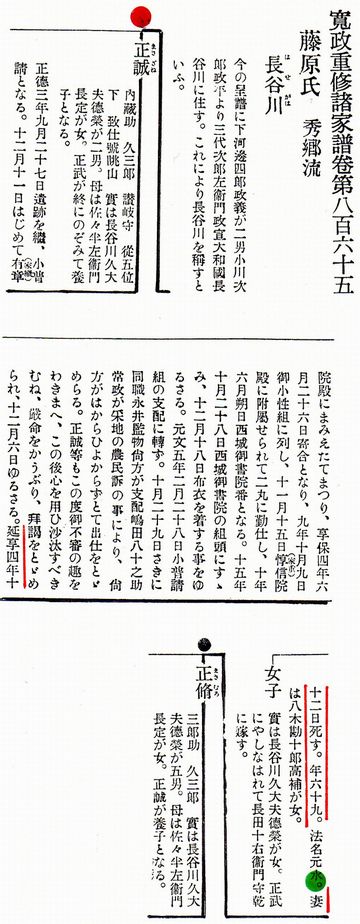 寛政重修諸家譜卷第八百六十五
藤原氏 秀郷流
長谷川
はせがは
今の呈譜に下河邊四郎政義が二男小川次
郎政平より三代次郎左衛門政宣大和國長
谷川に住す。これにより長谷川を稱すと
いふ。
正誠
まさざね
内藏助 久三郎 讃岐守 從五位
下 致仕號眺山 實は長谷川久大
夫德榮が二男。母は佐々半左衛門
長定が女。正武が終にのぞみて養
子となる。
正德三年九月二十七日遺跡を繼、小普
請となる。十二月十一日はじめて有章
院殿にまみえたてまつり、享保四年六
月二十六日寄合となり、九年十月九日
御小性組に列し、十一月十五日惇信院
殿に附屬せられて二丸に勤仕し、十年
六月朔日西城御書院番となる。十五年
十月二十八日西城御書院の組頭にすゝ
み、十二月十八日布衣を着する事をゆ
るさる。元文五年二月二十八日小普請
組の支配に轉ず。十月二十九日さきに
同職永井監物尙方が支配嶋田八十之助
常政が采地の農民訴の事により、尙
方がはからひよからずとて出仕をとゞ
めらる。正誠等もこの度御不審の趣を
わきまへ、この後心を用ひ沙汰すべき
むね、嚴命をかうぶり、拜謁をとゞめ
られ、十二月六日ゆるさる。延享四年十
十二日死す。年六十九。法名元水。妻
は八木勘十郎高補が女。
女子
實は長谷川久大夫德榮が女。正武
にやしなはれて長田十右衛門守乾
に嫁す。
正脩
まさむろ
三郎助 久三郎 實は長谷川久大
夫德榮が五男。母は佐々半左衛門
長定が女。正誠が養子となる。